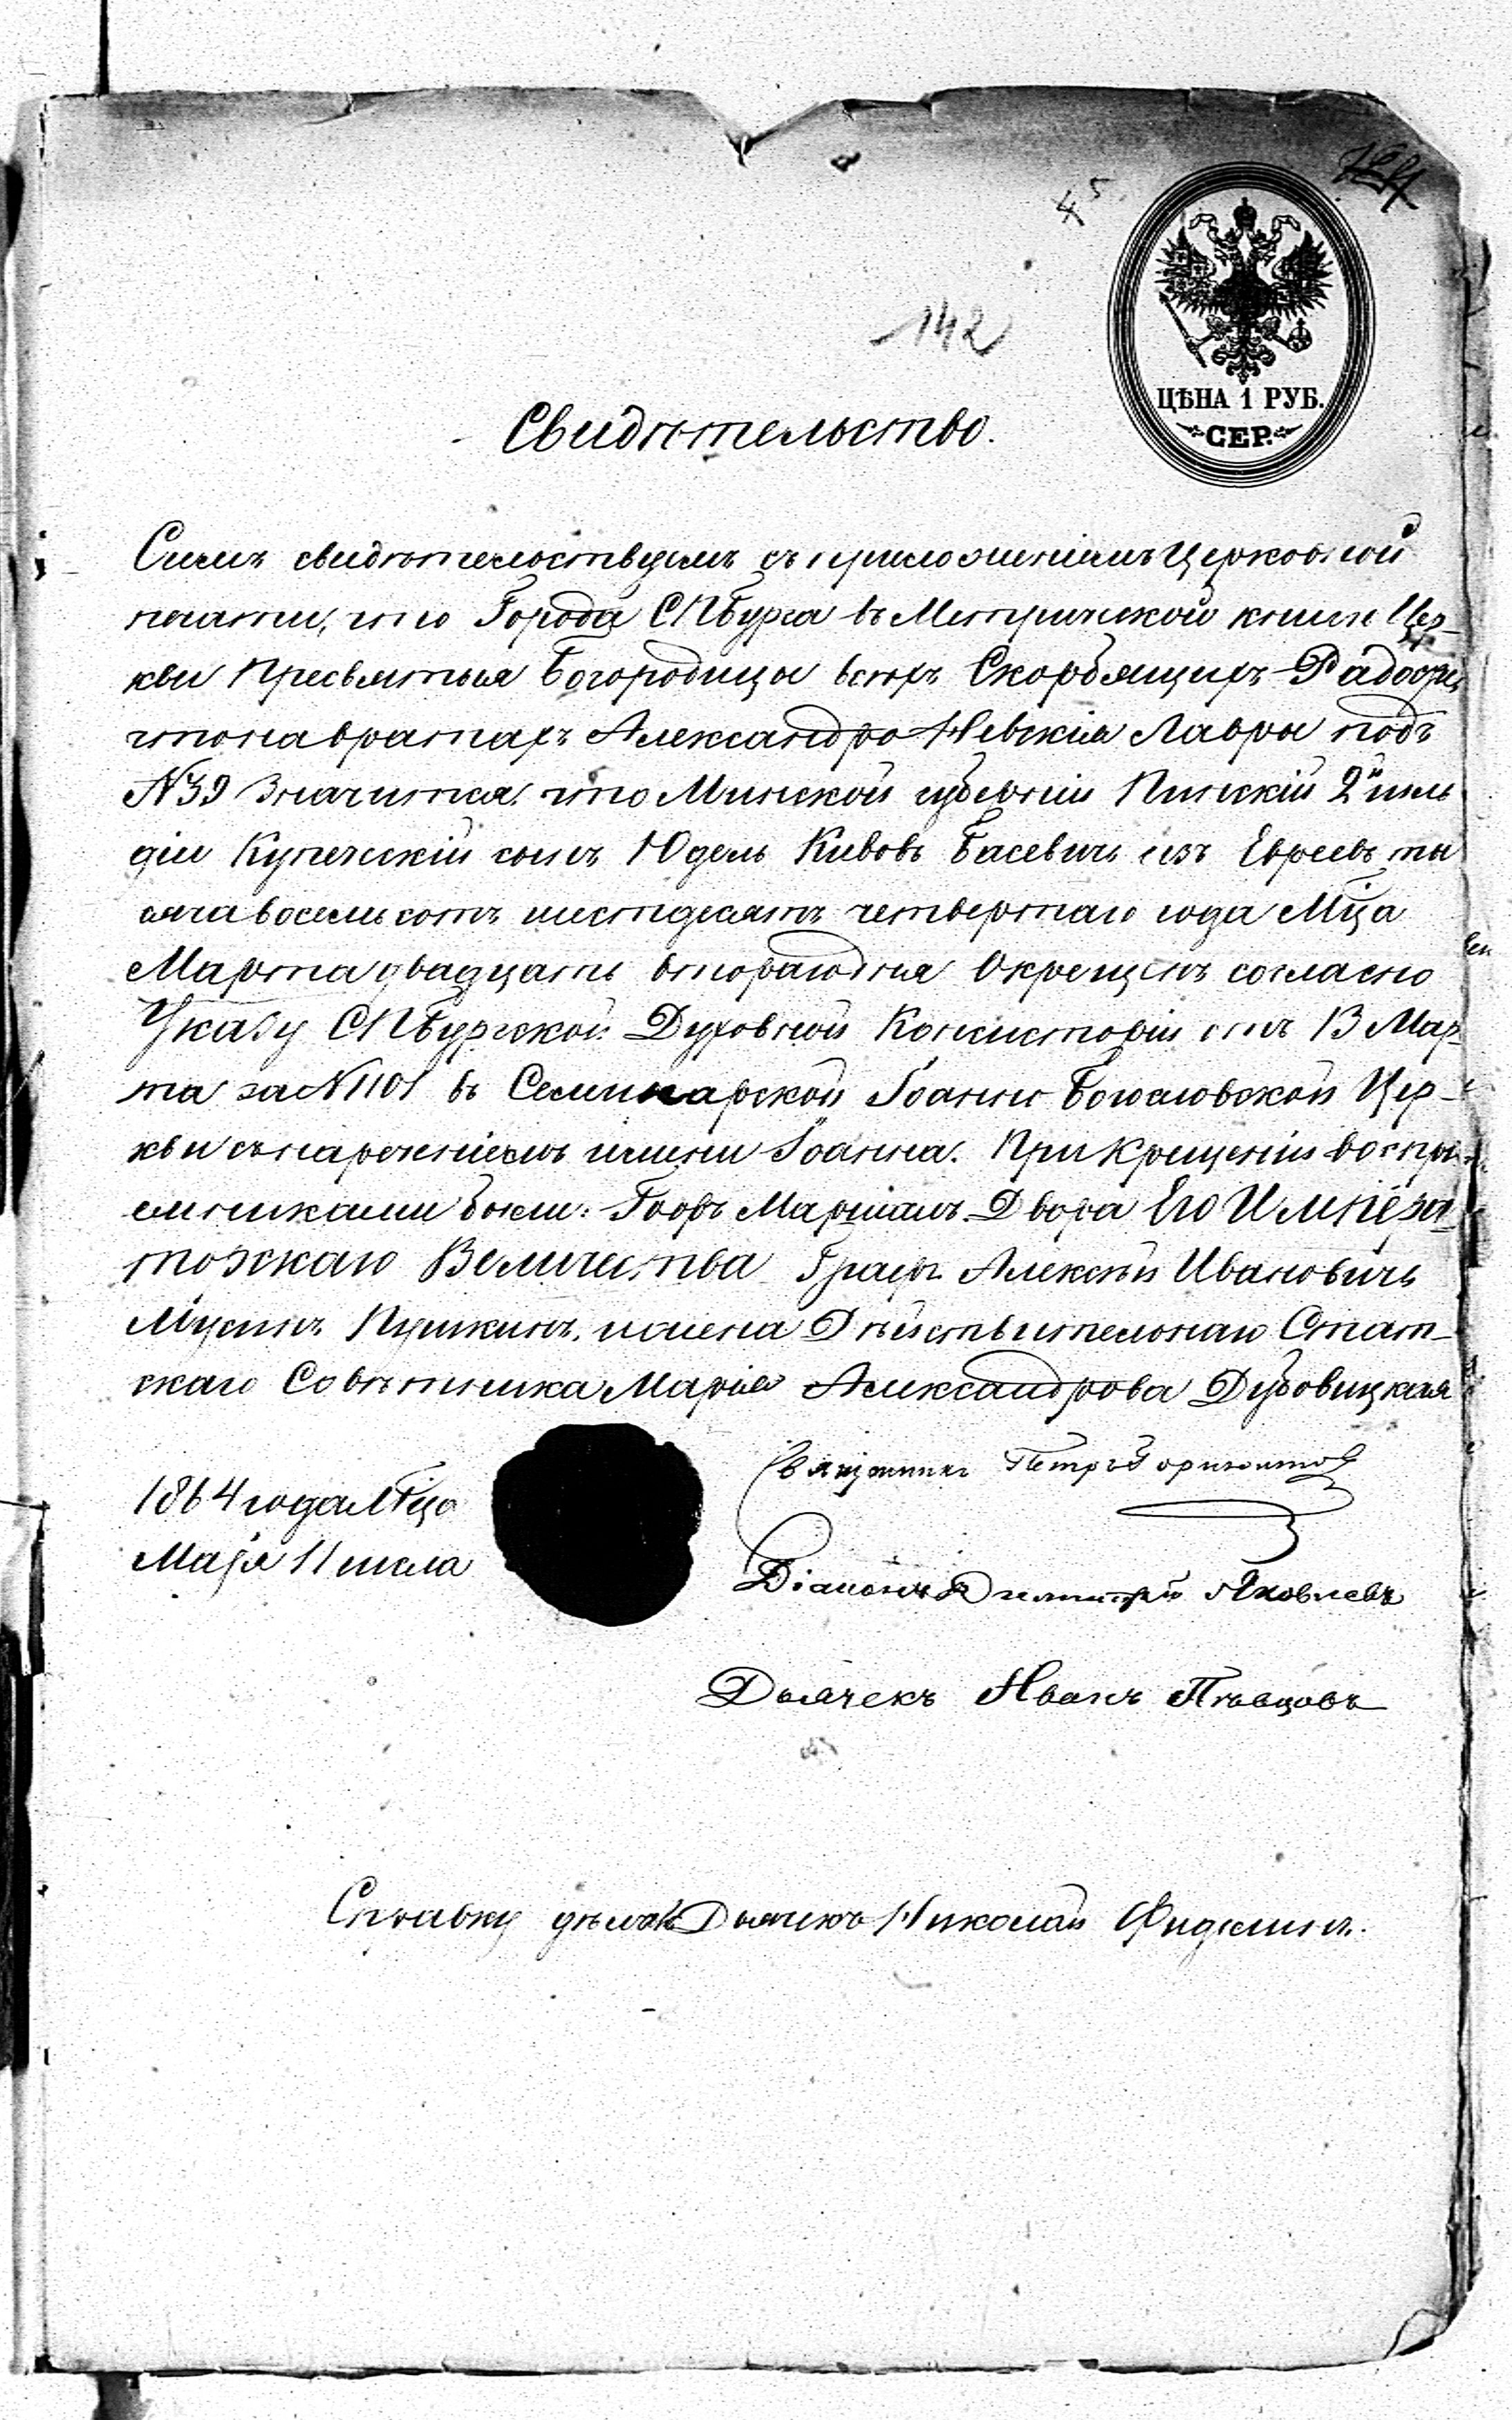 45
142
ЦѢНА 1 РУБ.
СЕР.
Свидѣтельство.
Симъ свидѣтельствуемъ съ приложеніемъ Церковной
печати, что Города СПбурга въ Метрической книги Цер-
кви Пресвятыя Богородицы всѣхъ Скорбящихъ Радости,
что на вратахъ Александро-Невскія Лавры подъ
№ 39 значится, что Минской губерніи Пинскій 2й гиль
діи Купеческій сынъ Юдель Кивовъ Басевичъ изъ Евреевъ ты
сяча восемьсотъ шестдесятъ четвертаго года Мца
Марта двадцать втораго дня Окрещенъ согласно
Указу СПбургской Духовной Консисторіи отъ 13 Мар-
та за № 1101 въ Семинарской Іоанно Богословской Цер-
кви съ нареченіемъ имени Іоанна. При Крещеніи воспрі-
емниками были: Гофъ Маршалъ Двора Его Импера-
торскаго Величества Графъ Алексѣй Ивановичъ
Мусинъ Пушкинъ, и жена Дѣйствительнаго Стат-
скаго Совѣтника Марія Александрова Дубовицкая
Священникъ Петръ
1864 года Мца
Мая 11 числа
Діаконъ Димитрій Яковлевъ
Дьячекъ Иванъ Пѣвцовъ
Справку дѣлалъ Дьячекъ Николай